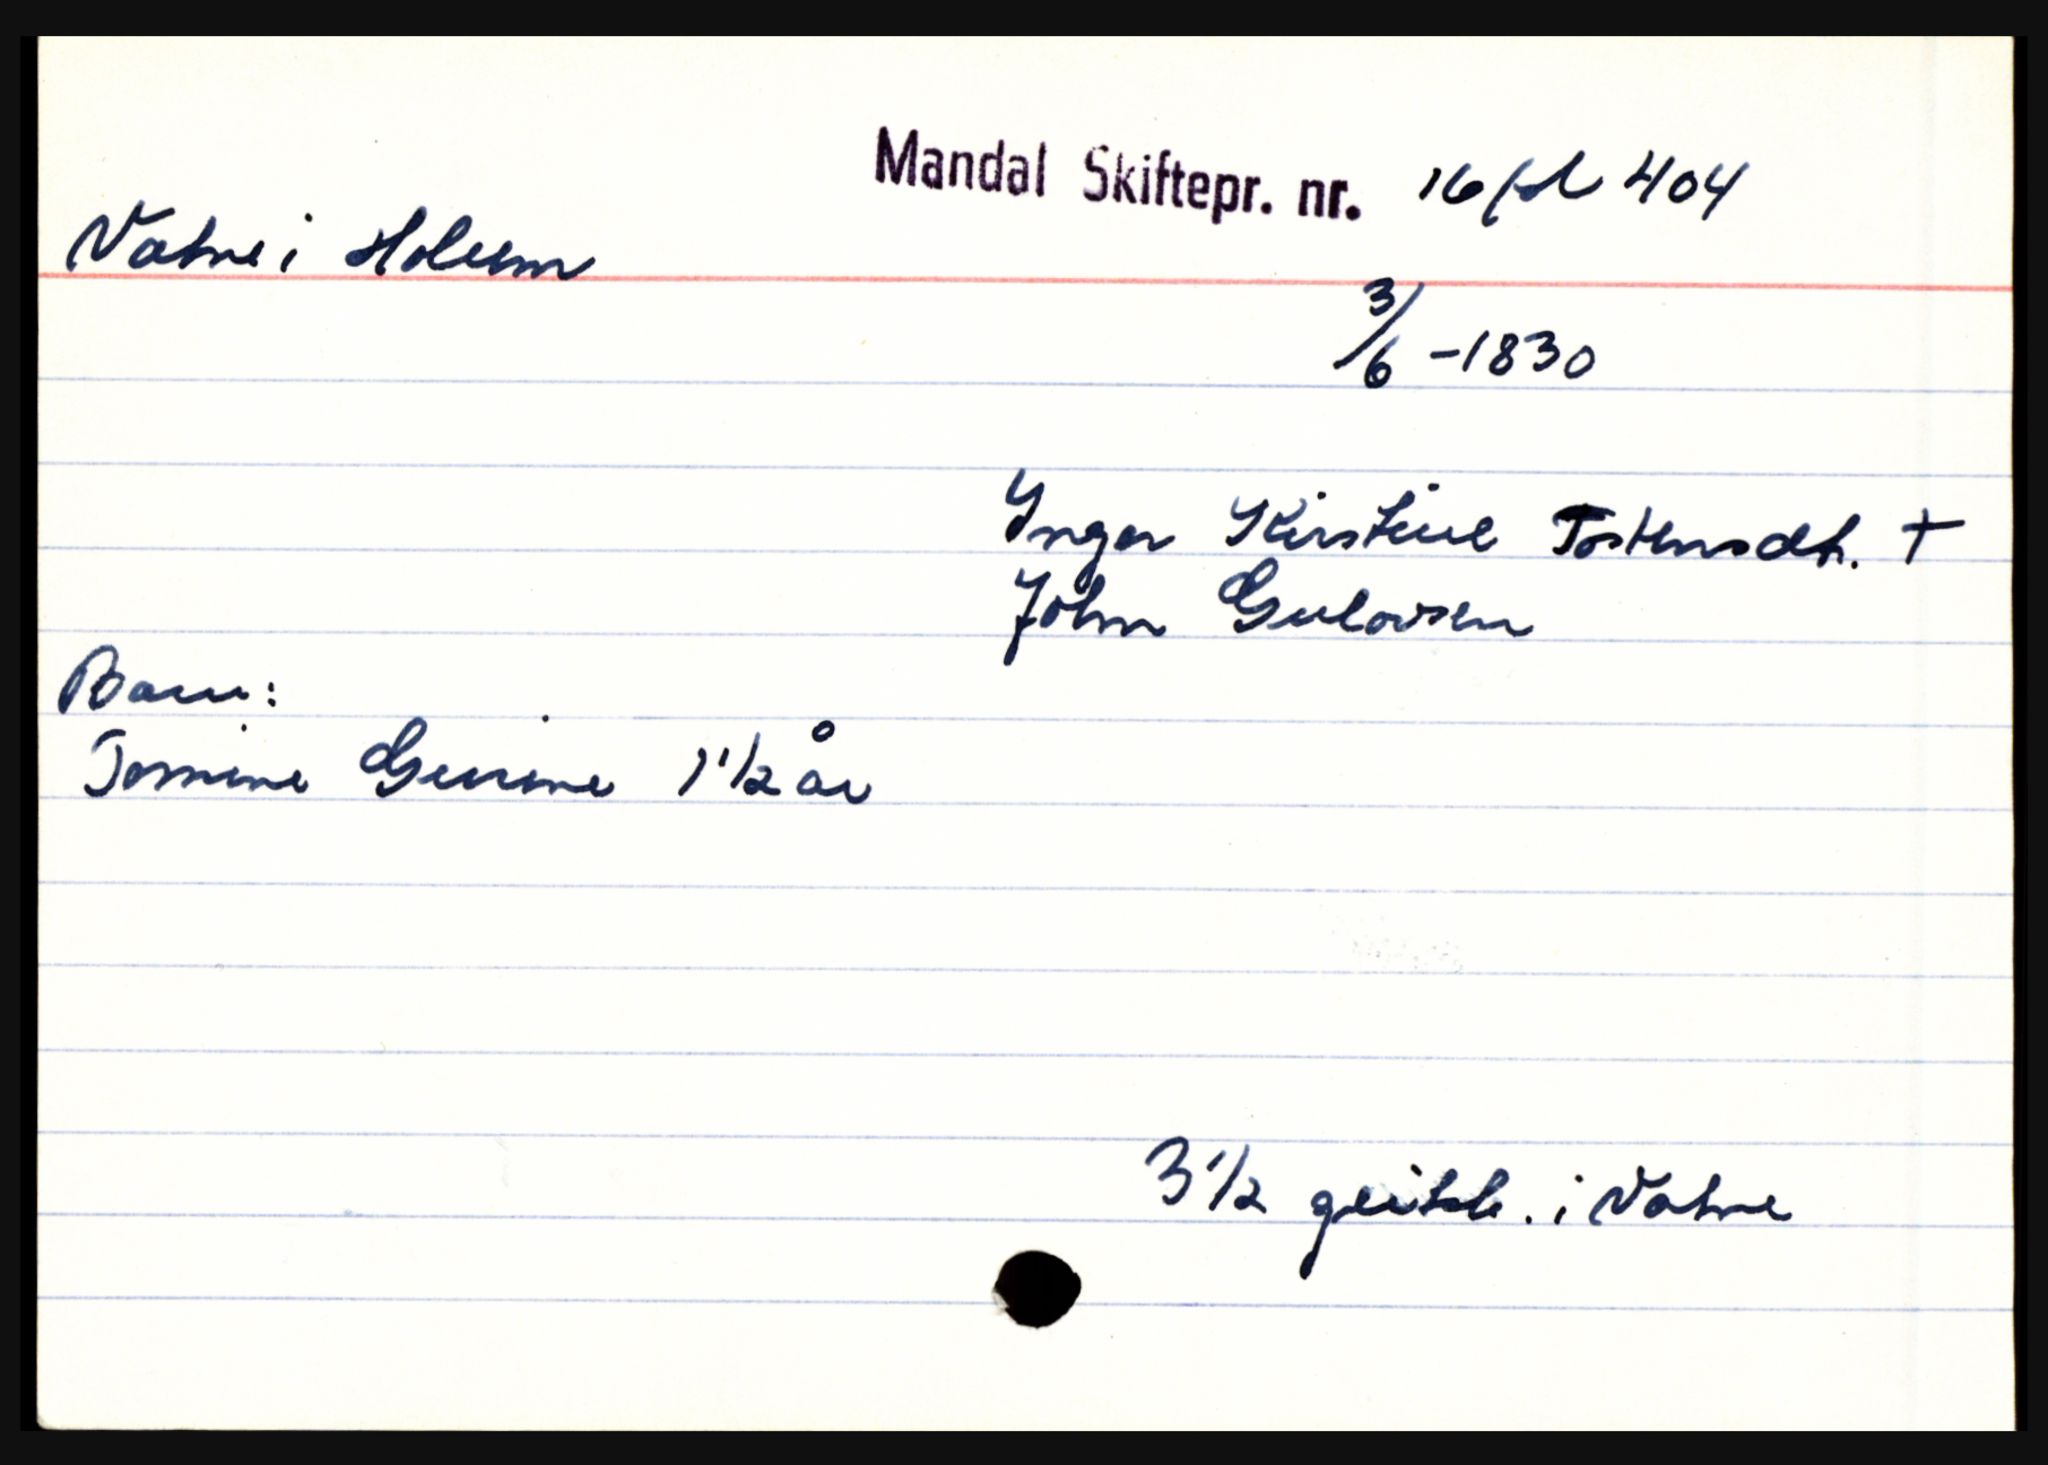 Mandal Skiftepr. nr. 16 fol 404
Vatne i Holum
3/6 - 1830
Inger Kirstine Tostensdt. †
John Gulovsen
Barn:
Tomine Gurine 1 1/2 år
3 1/2 geitsk. i Vatne